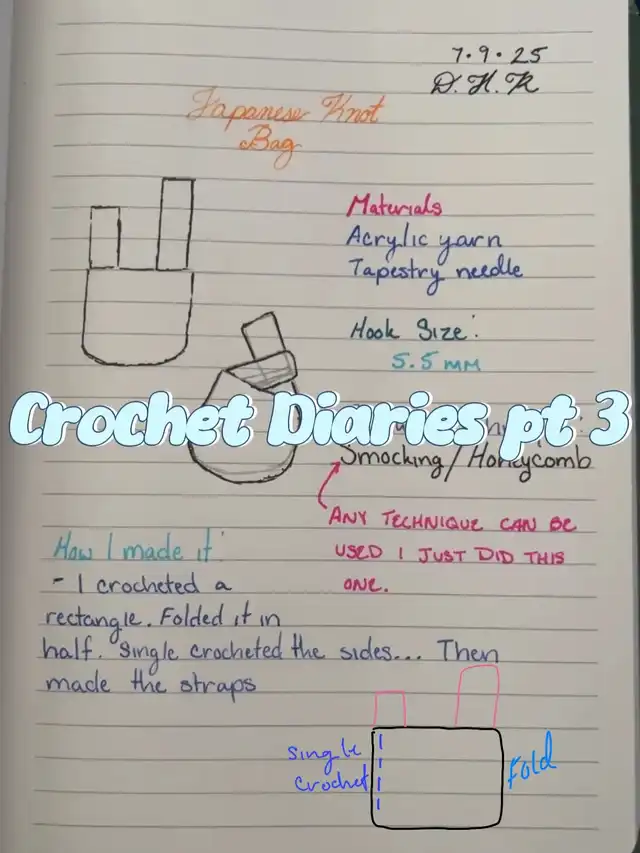 7.9.25
D.H.R
Japanese Knot
Bag
Materials
Acrylic yarn
Tapestry needle
Hook Size:
5.5 mm
Crochet Diaries pt 3
Smocking/Honeycomb
ANY TECHNIQUE CAN BE
USED I JUST DID THIS
ONE.
How I made it:
- I crocheted a
rectangle. Folded it in
half. Single crocheted the sides... Then
made the straps
Single
Crochet
Fold